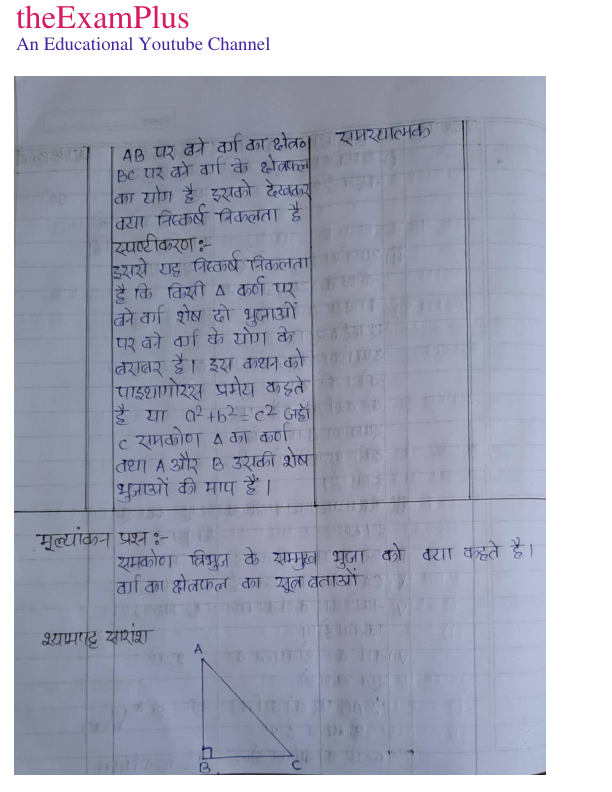 theExamPlus
An Educational Youtube Channel
AB पर बने वर्ग का क्षेत्र०
समस्यात्मक
BC पर बने वर्ग के क्षेत्रफल
का योग है इसको देखकर
क्या निष्कर्ष निकलता है
स्पष्टीकरण :-
इससे यह निष्कर्ष निकलता
है कि किसी Δ कर्ण पर
बने वर्ग शेष दो भुजाओं
पर बने वर्ग के योग के
बराबर है। इस कथन को
पाइथागोरस प्रमेय कहते
है या a²+b²=c² जहाँ
c समकोण Δ का कर्ण
तथा A और B उसकी शेष
भुजाओं की माप हैं।
मूल्यांकन प्रश्न :-
समकोण त्रिभुज के सम्मुख भुजा को क्या कहते है।
वर्ग का क्षेत्रफल का सूत्र बताओं
श्यामपट्ट सारांश
A
B
C